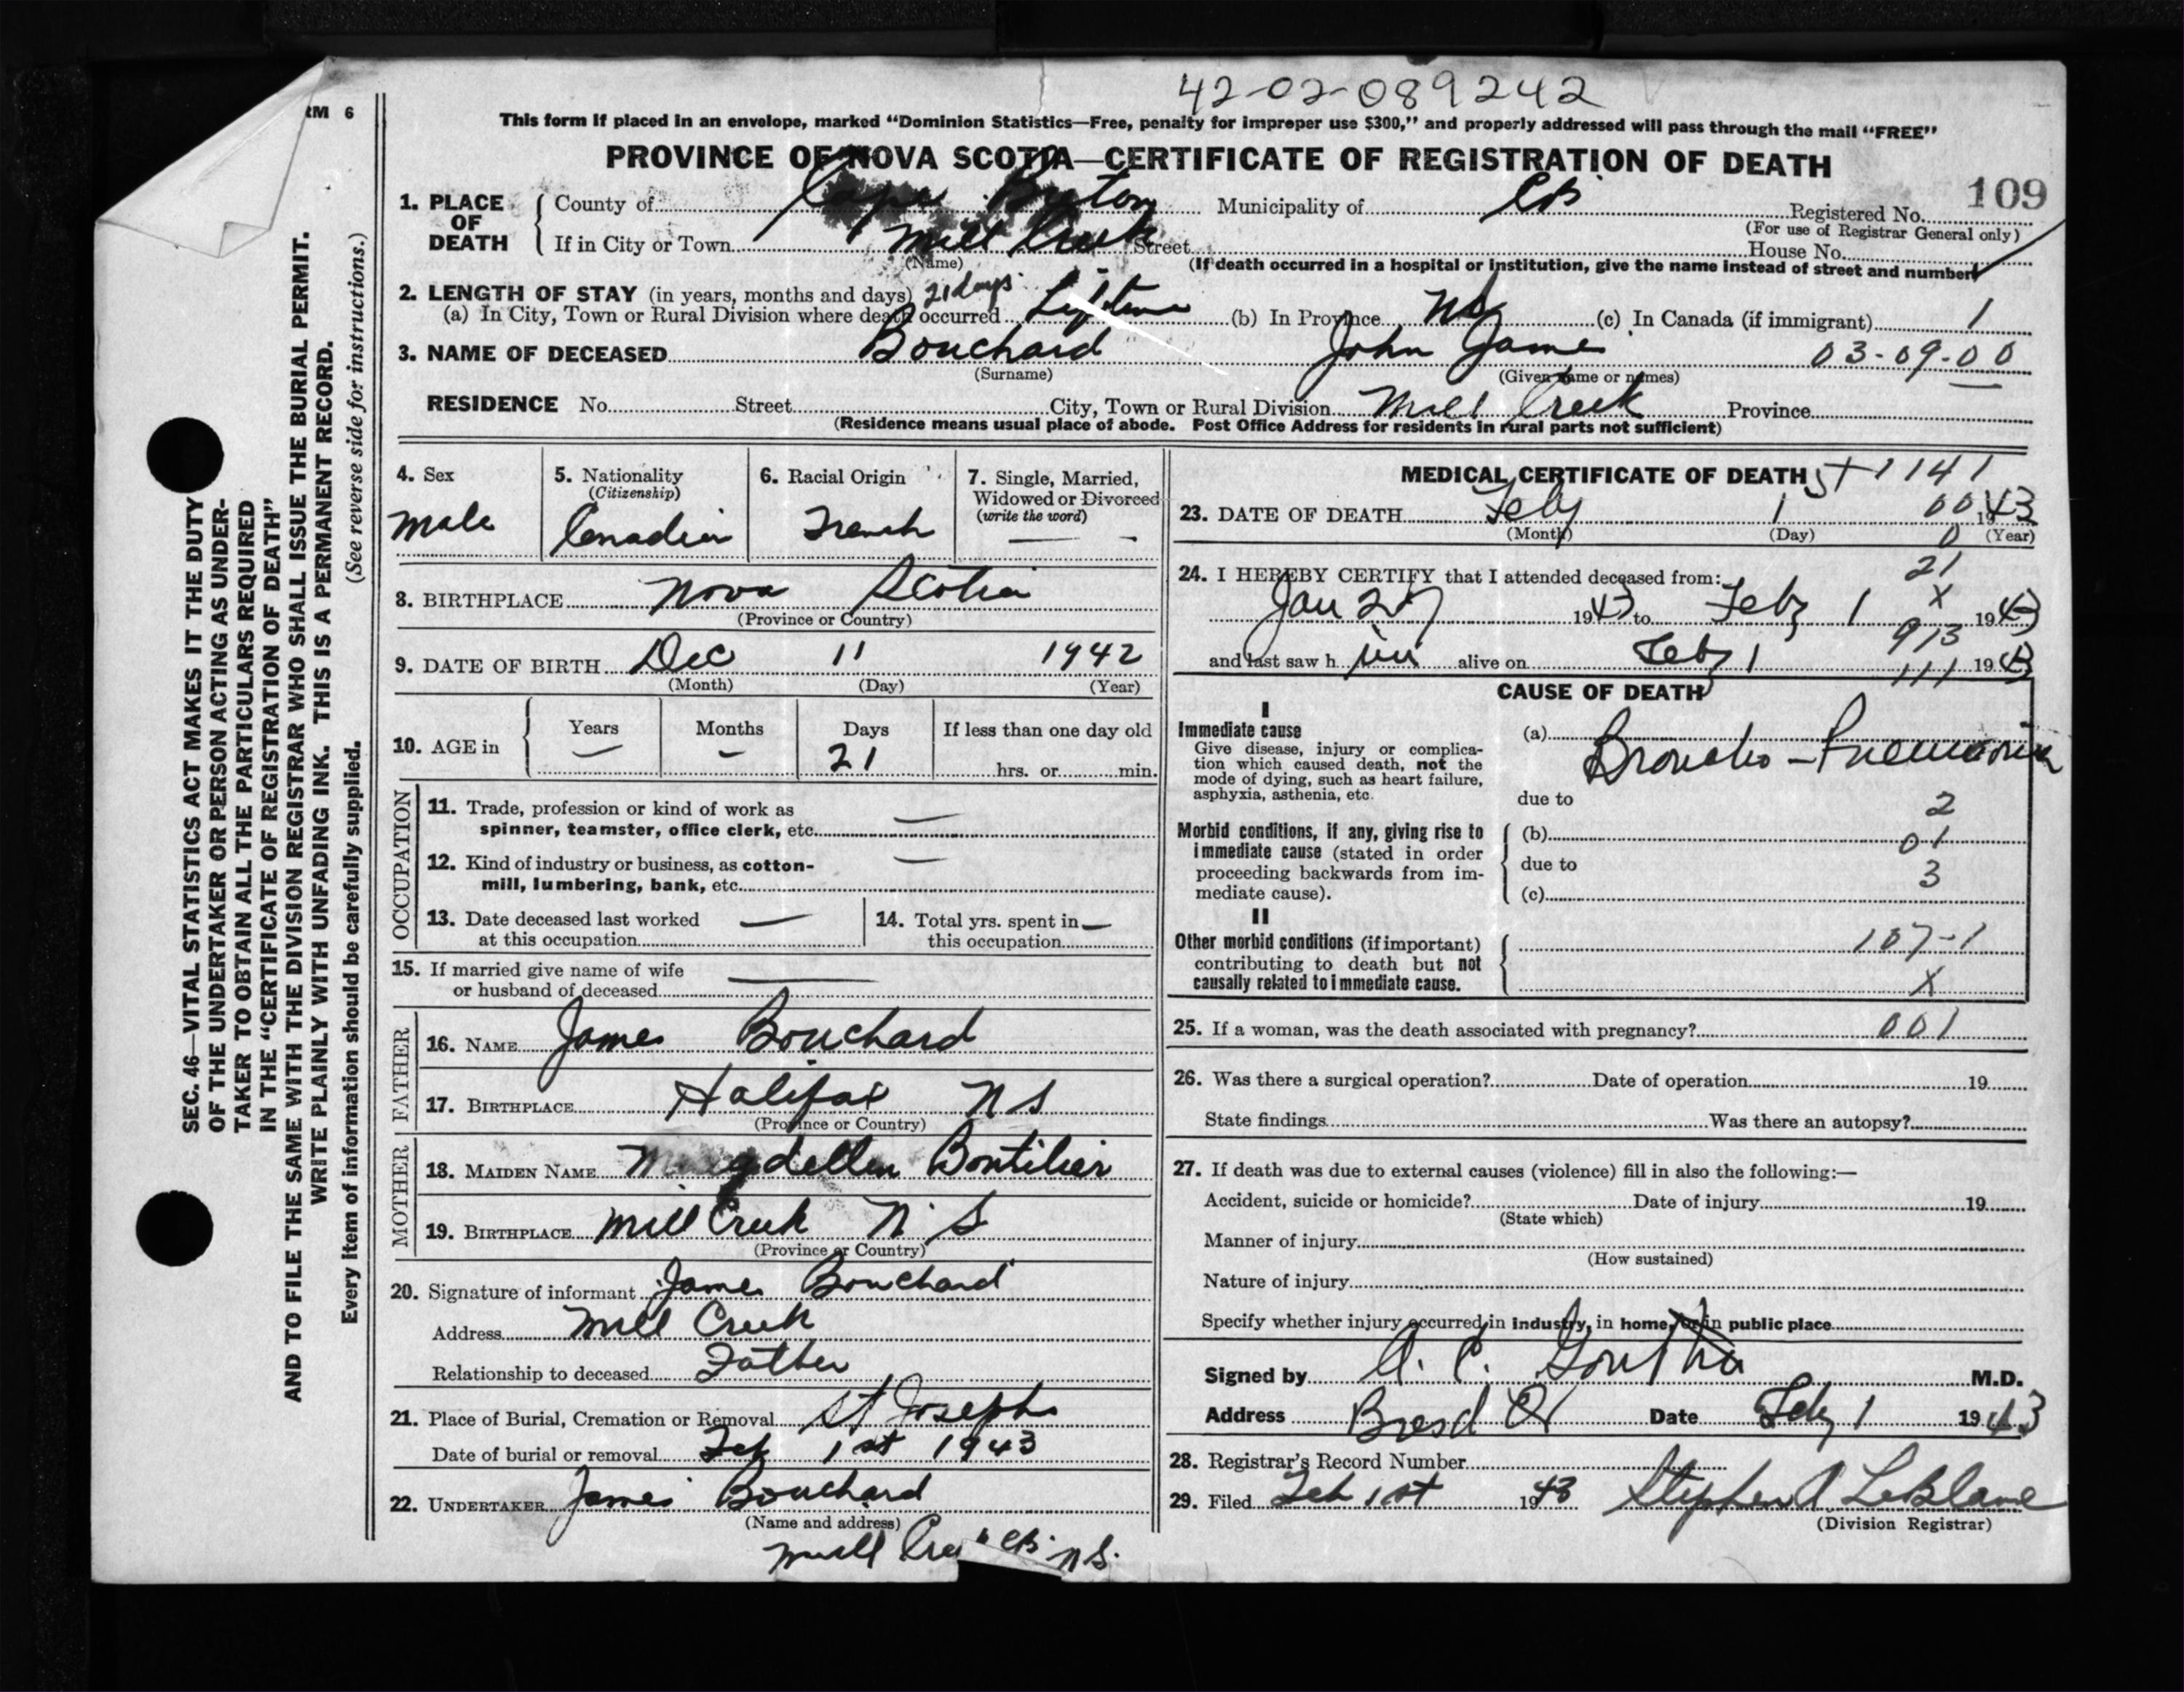 42-02-089242
RM 6
This form if placed in an envelope, marked “Dominion Statistics—Free, penalty for improper use $300,” and properly addressed will pass through the mail “FREE”
PROVINCE OF NOVA SCOTIA—CERTIFICATE OF REGISTRATION OF DEATH
109
1. PLACE OF DEATH
County of Cape Breton Municipality of CB Registered No.
(For use of Registrar General only)
If in City or Town Mill Creek Street House No.
(Name) (If death occurred in a hospital or institution, give the name instead of street and number)
2. LENGTH OF STAY (in years, months and days) 21 days
(a) In City, Town or Rural Division where death occurred Lifetime (b) In Province NS (c) In Canada (if immigrant) 1
3. NAME OF DECEASED Bouchard John Jame 03-09-00
(Surname) (Given name or names)
RESIDENCE No. Street City, Town or Rural Division Mill Creek Province
(Residence means usual place of abode. Post Office Address for residents in rural parts not sufficient)
4. Sex
Male
5. Nationality
(Citizenship)
Canadian
6. Racial Origin
French
7. Single, Married,
Widowed or Divorced
(write the word)
—
8. BIRTHPLACE Nova Scotia
(Province or Country)
9. DATE OF BIRTH Dec 11 1942
(Month) (Day) (Year)
10. AGE in
Years Months Days If less than one day old
— — 21 hrs. or min.
OCCUPATION
11. Trade, profession or kind of work as
spinner, teamster, office clerk, etc. —
12. Kind of industry or business, as cotton-
mill, lumbering, bank, etc. —
13. Date deceased last worked
at this occupation —
14. Total yrs. spent in
this occupation —
15. If married give name of wife
or husband of deceased —
FATHER
16. NAME James Bouchard
17. BIRTHPLACE Halifax NS
(Province or Country)
MOTHER
18. MAIDEN NAME Magdellen Boutilier
19. BIRTHPLACE Mill Creek N S
(Province or Country)
20. Signature of informant James Bouchard
Address Mill Creek
Relationship to deceased Father
21. Place of Burial, Cremation or Removal St Josephs
Date of burial or removal Feb 1st 1943
22. UNDERTAKER James Bouchard
(Name and address)
Mill Cre CB NS.
MEDICAL CERTIFICATE OF DEATH 1141
23. DATE OF DEATH Feby 1 00 1943
(Month) (Day) 0 (Year)
24. I HEREBY CERTIFY that I attended deceased from: 21
Jan 27 1943 to Feby 1 X 1943
913
and last saw h im alive on Feby 1 111 1943
CAUSE OF DEATH
I
Immediate cause
Give disease, injury or complica-
tion which caused death, not the
mode of dying, such as heart failure,
asphyxia, asthenia, etc.
(a) Broncho-Pneumonia
due to 2
Morbid conditions, if any, giving rise to
immediate cause (stated in order
proceeding backwards from im-
mediate cause).
(b) 01
due to 3
(c)
II
Other morbid conditions (if important)
contributing to death but not
causally related to immediate cause.
107-1
X
25. If a woman, was the death associated with pregnancy? 001
26. Was there a surgical operation? Date of operation 19
State findings Was there an autopsy?
27. If death was due to external causes (violence) fill in also the following:—
Accident, suicide or homicide? Date of injury 19
(State which)
Manner of injury
(How sustained)
Nature of injury
Specify whether injury occurred in industry, in home, or in public place
Signed by A. C. M.D.
Address Date Feby 1 1943
28. Registrar's Record Number
29. Filed Feb 1st 1943 Stephen A LeBlanc
(Division Registrar)
SEC. 46—VITAL STATISTICS ACT MAKES IT THE DUTY
OF THE UNDERTAKER OR PERSON ACTING AS UNDER-
TAKER TO OBTAIN ALL THE PARTICULARS REQUIRED
IN THE “CERTIFICATE OF REGISTRATION OF DEATH”
AND TO FILE THE SAME WITH THE DIVISION REGISTRAR WHO SHALL ISSUE THE BURIAL PERMIT.
WRITE PLAINLY WITH UNFADING INK. THIS IS A PERMANENT RECORD.
Every item of information should be carefully supplied. (See reverse side for instructions.)